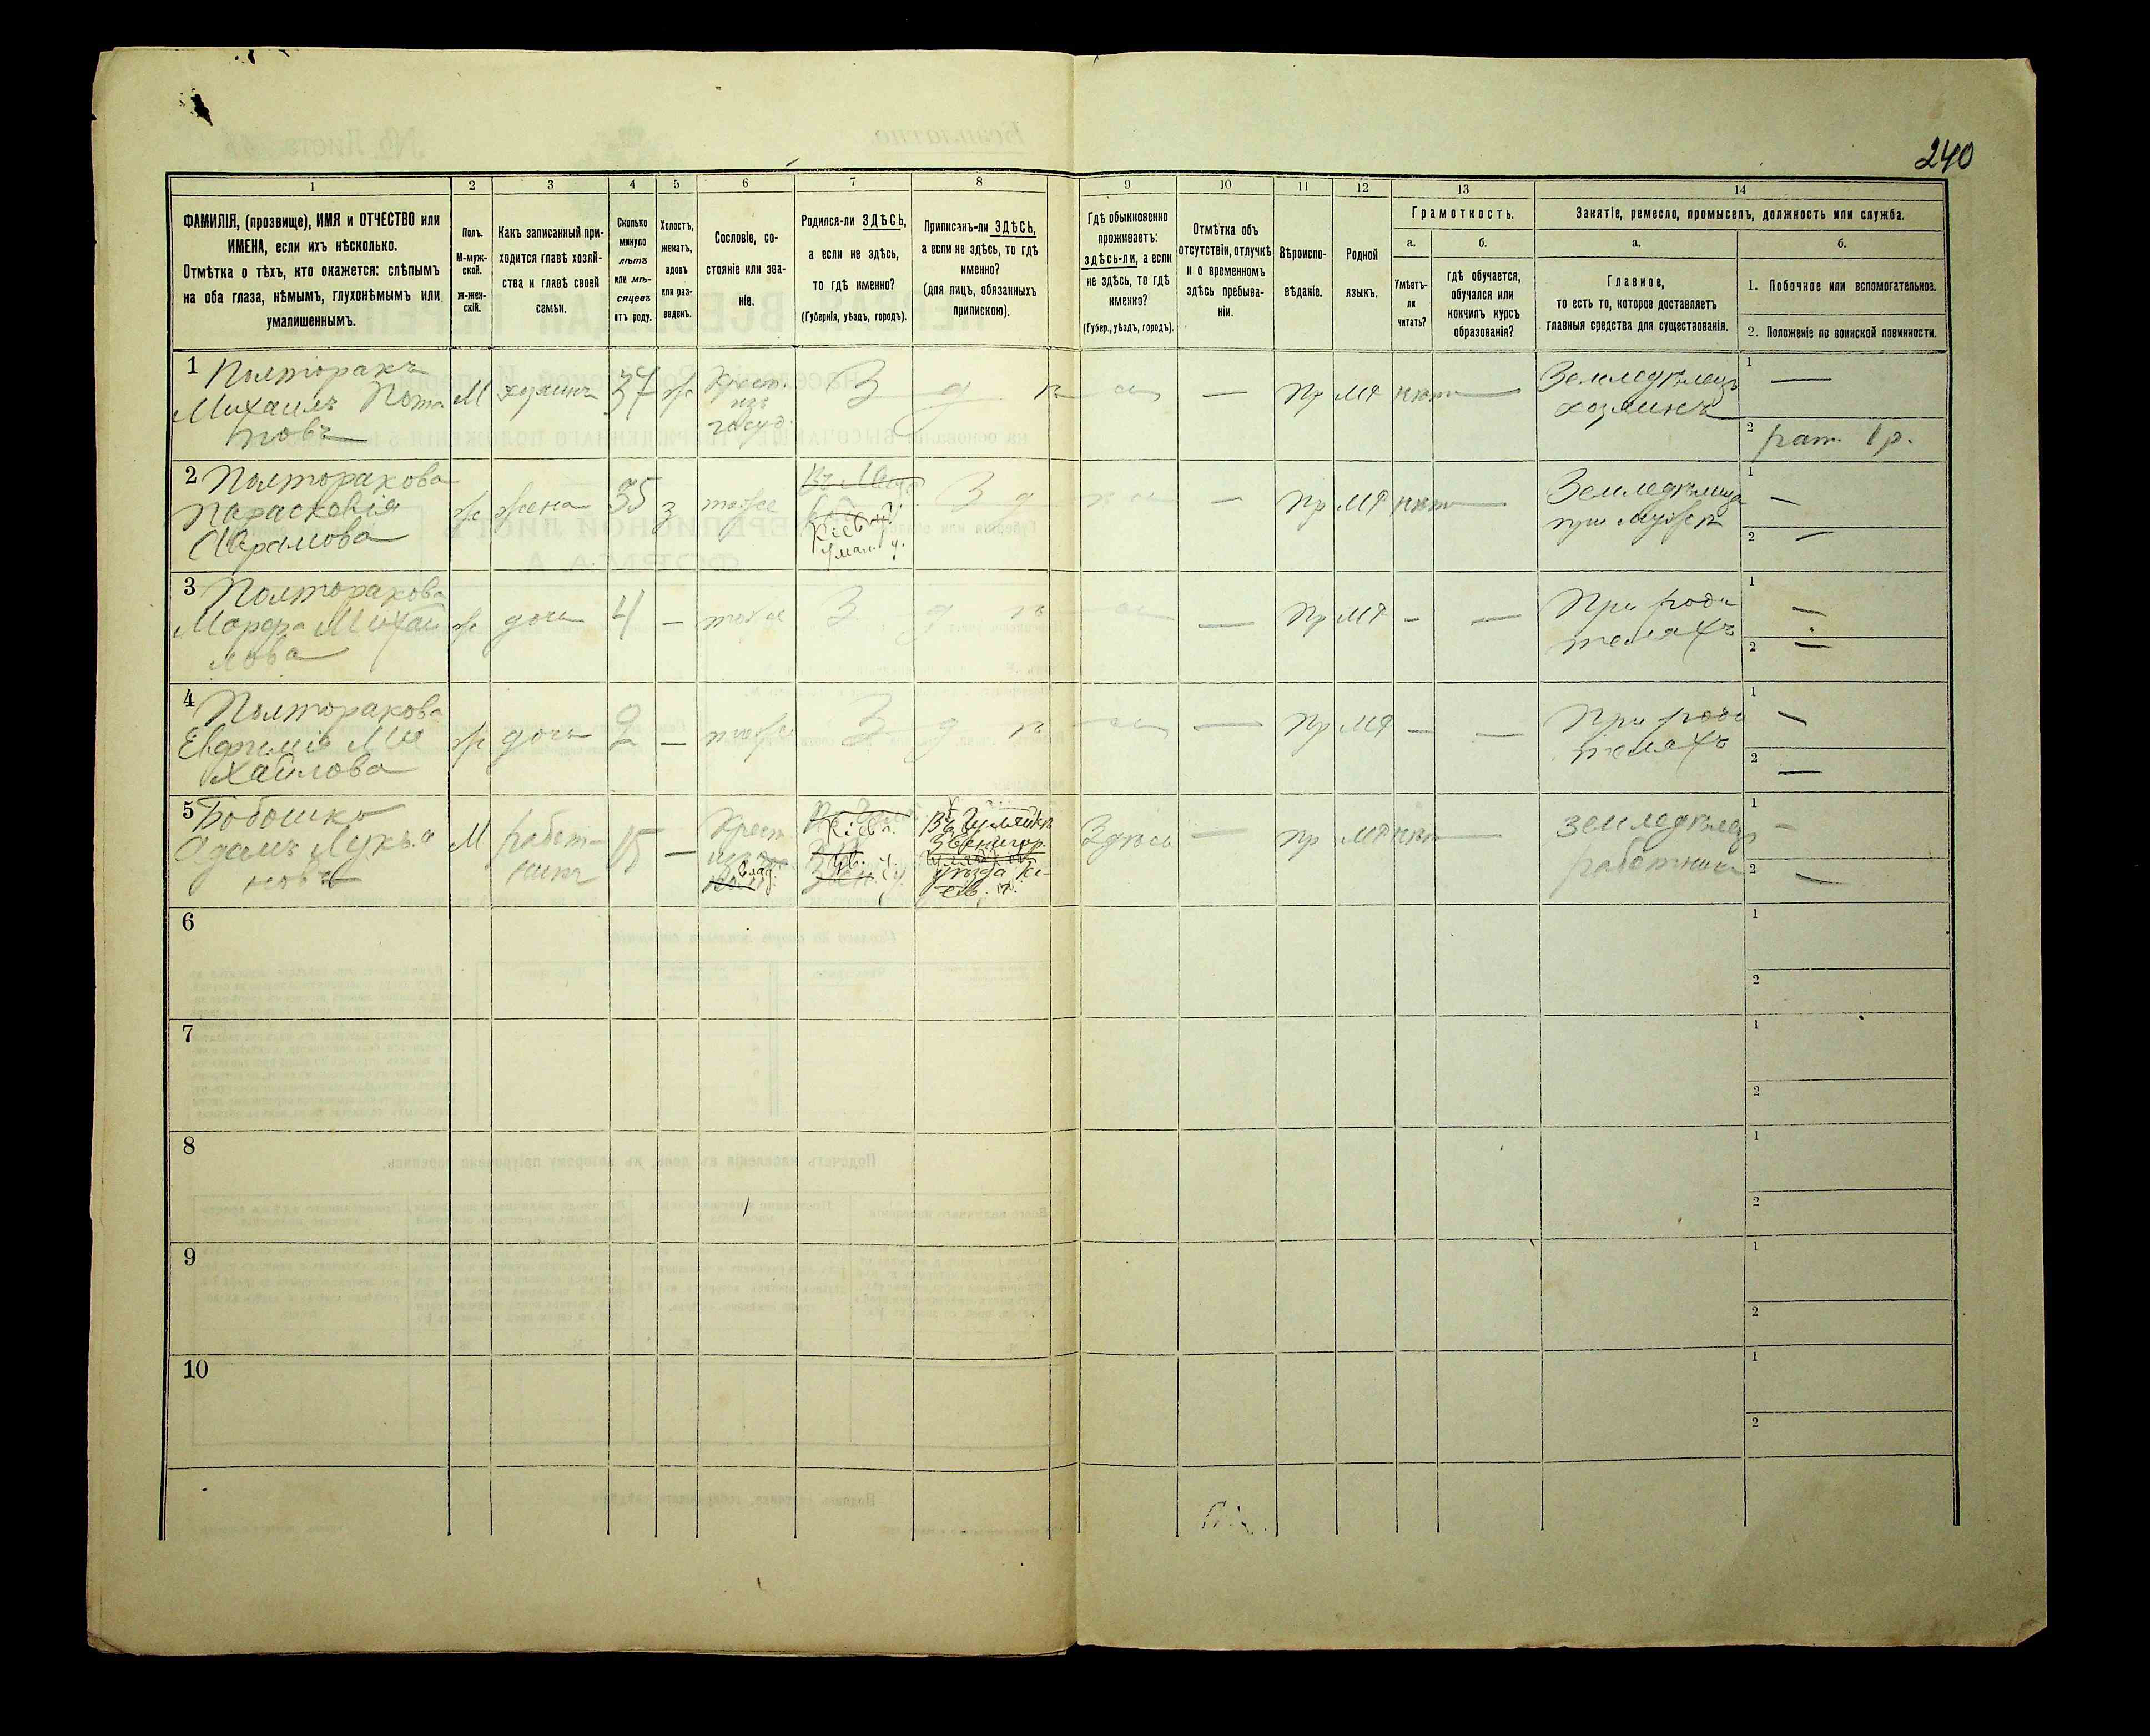 240
1
2
3
4
5
6
7
8
9
10
11
12
13
14
ФАМИЛІЯ, (прозвище), ИМЯ и ОТЧЕСТВО или
ИМЕНА, если ихъ нѣсколько.
Отмѣтка о тѣхъ, кто окажется: слѣпымъ
на оба глаза, нѣмымъ, глухонѣмымъ или
умалишеннымъ.
Полъ.
М-муж-
ской.
ж-жен-
скій.
Какъ записанный при-
ходится главѣ хозяй-
ства и главѣ своей
семьи.
Сколько
минуло
лѣтъ
или мѣ-
сяцевъ
отъ роду.
Холостъ,
женатъ,
вдовъ
или раз-
веденъ.
Сословіе, со-
стояніе или зва-
ніе.
Родился-ли ЗДѢСЬ,
а если не здѣсь,
то гдѣ именно?
(Губернія, уѣздъ, городъ).
Приписанъ-ли ЗДѢСЬ,
а если не здѣсь, то гдѣ
именно?
(для лицъ, обязанныхъ
припискою).
Гдѣ обыкновенно
проживаетъ:
здѣсь-ли, а если
не здѣсь, то гдѣ
именно?
(Губер., уѣздъ, городъ).
Отмѣтка объ
отсутствіи, отлучкѣ
и о временномъ
здѣсь пребыва-
ніи.
Вѣроиспо-
вѣданіе.
Родной
языкъ.
Грамотность.
а.
Умѣетъ-
ли
читать?
б.
гдѣ обучается,
обучался или
кончилъ курсъ
образованія?
Занятіе, ремесло, промыселъ, должность или служба.
а.
Главное,
то есть то, которое доставляетъ
главныя средства для существованія.
б.
1. Побочное или вспомогательное.
2. Положеніе по воинской повинности.
1 Полторакъ
Михаилъ Пота
повъ
М
хозяинъ
37
ж
Крест.
изъ
госуд.
З д
—
Пр
МР
нѣтъ
Земледѣлецъ
хозяинъ
1 —
2 рат. 1 р.
2 Полторакова
Парасковія
Аврамова
ж
жена
35
з
тоже
Кіев. г.
Уман. у.
З д
—
Пр
МР
нѣтъ
Земледѣлица
при мужѣ
1 —
2 —
3 Полторакова
Марфа Михаи
лова
ж
дочь
4
—
тоже
З д
—
Пр
МР
—
—
При роди
теляхъ
1 —
2 —
4 Полторакова
Евфимія Ми
хайлова
ж
дочь
2
—
тоже
З д
—
Пр
МР
—
—
При роди
теляхъ
1 —
2 —
5 Бобошко
Адамъ Лукья
новъ
М
работ-
никъ
15
—
Крест.
изъ
влад.
Кіев. г.
Зв. у.
Звенигор.
уѣзда Кі-
ев. г.
Здѣсь
—
Пр
МР
нѣтъ
Земледѣлец
работник
1 —
2 —
6
1
2
7
1
2
8
1
2
9
1
2
10
1
2